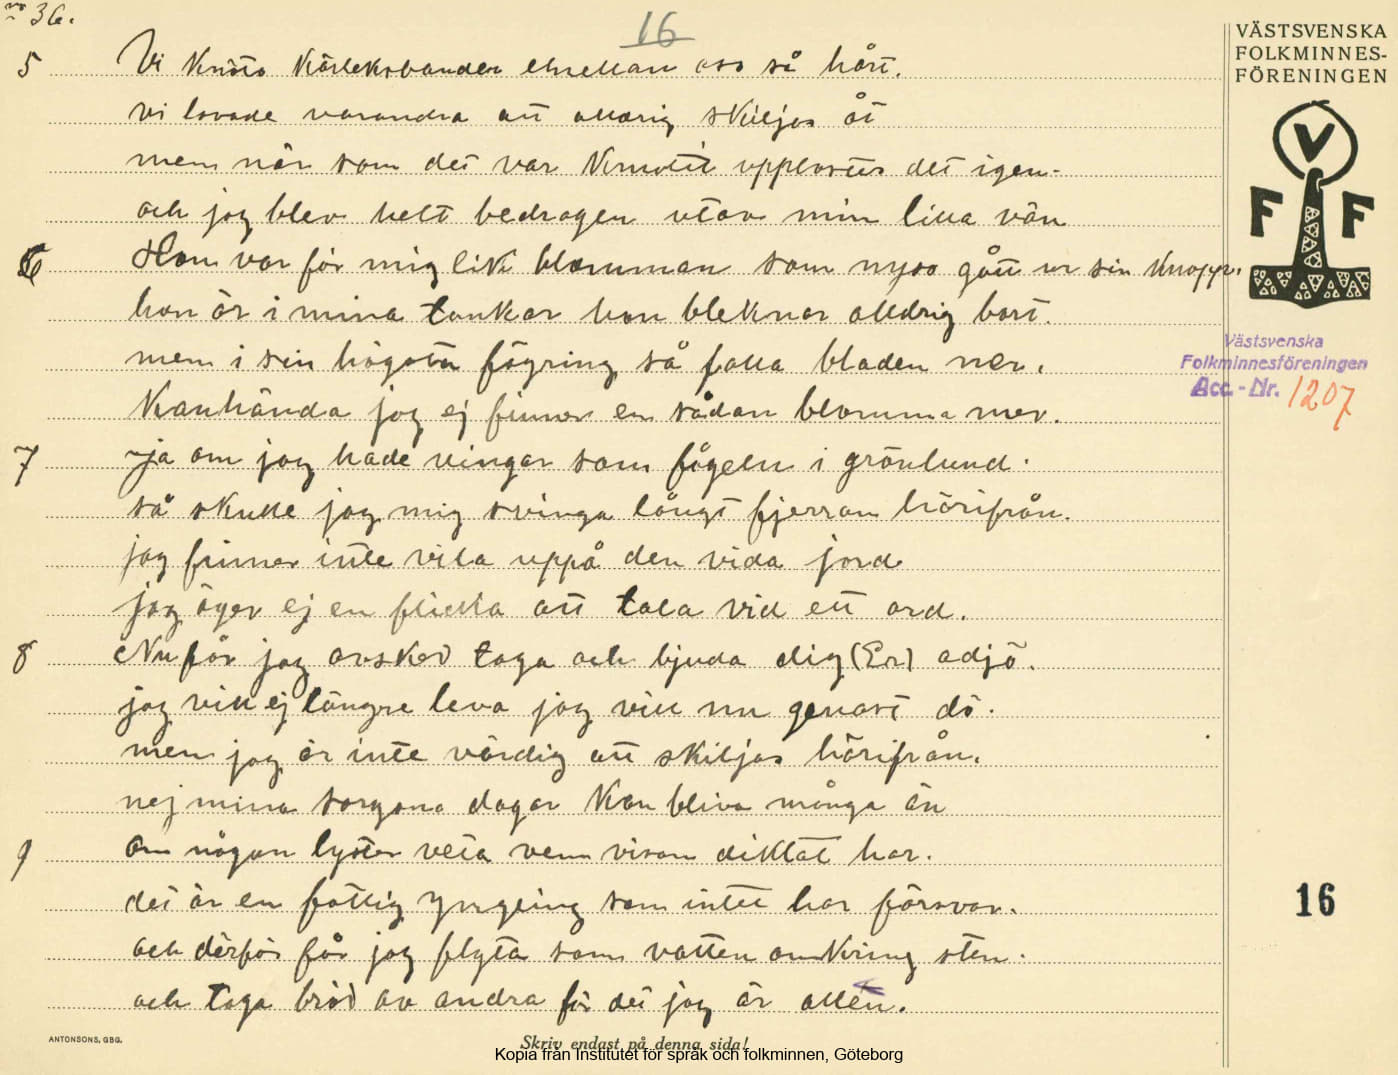 no 36.
16
VÄSTSVENSKA
FOLKMINNES-
FÖRENINGEN
V
F F
Västsvenska
Folkminnesföreningen
Acc.-Nr. 1207
5 Vi knöto kärleksbanden emellan oss så hårt.
vi lovade varandra att alldrig skiljas åt
men när som det var knutit upplöstes det igen.
och jag blev helt bedragen utav min lilla vän
6 Hon var för mig lik blomman som nyss gått ur sin knopp.
hon är i mina tankar hon bleknar alldrig bort.
men i sin högsta fägring så falla bladen ner.
Kanhända jag ej finner en sådan blomma mer.
7 Ja om jag hade vingar som fågeln i grönlund.
så skulle jag mig svinga långt fjerran härifrån.
jag finner inte vila uppå den vida jord
jag äger ej en flicka att tala vid ett ord.
8 Nu får jag avsked taga och bjuda dig (Er) adjö.
jag vill ej längre leva jag vill nu genast dö.
men jag är inte värdig att skiljas härifrån.
nej mina sorgsna dagar kan bliva många än
9 Om någon lyster veta vem visan diktat har.
det är en fattig yngling som intet har försvar.
och därför får jag flyta som vatten omkring sten.
och taga bröd av andra för det jag är allen.
16
ANTONSONS, GBG.
Skriv endast på denna sida!
Kopia från Institutet för språk och folkminnen, Göteborg